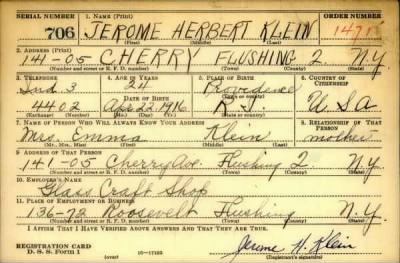 SERIAL NUMBER 1. NAME (Print) ORDER NUMBER
706 JEROME HERBERT KLEIN
(First) (Middle) (Last)
2. ADDRESS (Print)
141-05 CHERRY FLUSHING 2. N.Y.
(Number and street or R. F. D. number) (Town) (County) (State)
3. TELEPHONE 4. AGE IN YEARS 5. PLACE OF BIRTH 6. COUNTRY OF CITIZENSHIP
Ind. 3 24 Providence
DATE OF BIRTH (Town or county)
4402 Apr. 22, 1916 R.I. USA
(Exchange) (Number) (Mo.) (Day) (Yr.) (State or country)
7. NAME OF PERSON WHO WILL ALWAYS KNOW YOUR ADDRESS 8. RELATIONSHIP OF THAT PERSON
Mrs. Emma Klein mother
(Mr., Mrs., Miss) (First) (Middle) (Last)
9. ADDRESS OF THAT PERSON
141-05 Cherry Ave. Flushing 2 N.Y.
(Number and street or R. F. D. number) (Town) (County) (State)
10. EMPLOYER'S NAME
Glass Craft Shop
11. PLACE OF EMPLOYMENT OR BUSINESS
Roosevelt Flushing N.Y.
(Number and street or R. F. D. number) (Town) (County) (State)
I AFFIRM THAT I HAVE VERIFIED ABOVE ANSWERS AND THAT THEY ARE TRUE.
REGISTRATION CARD
D. S. S. Form 1 Jerome H. Klein
(Registrant's signature)